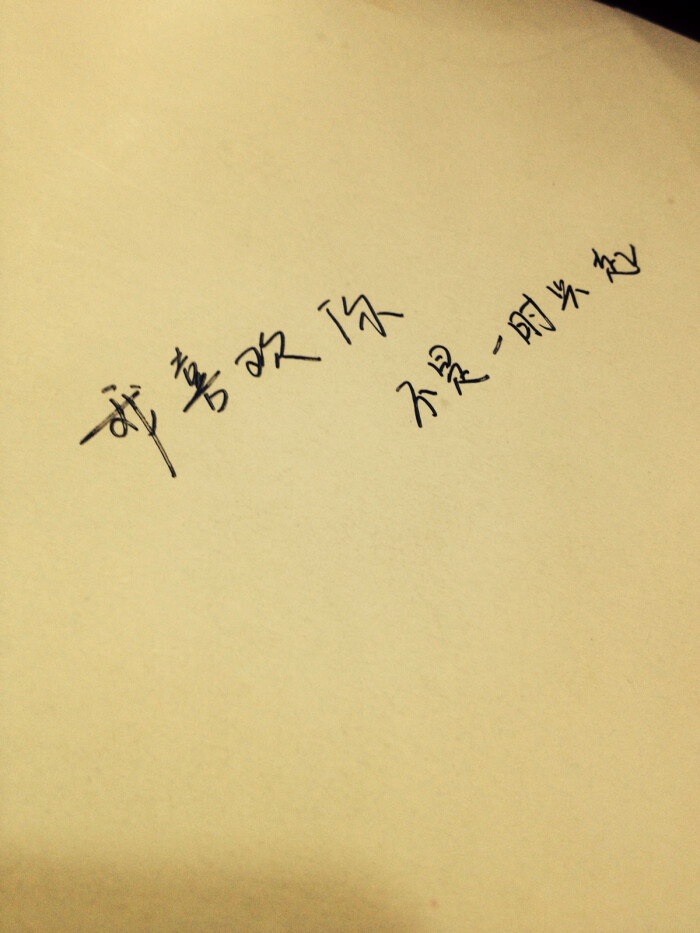 我喜欢你
不是一时兴起